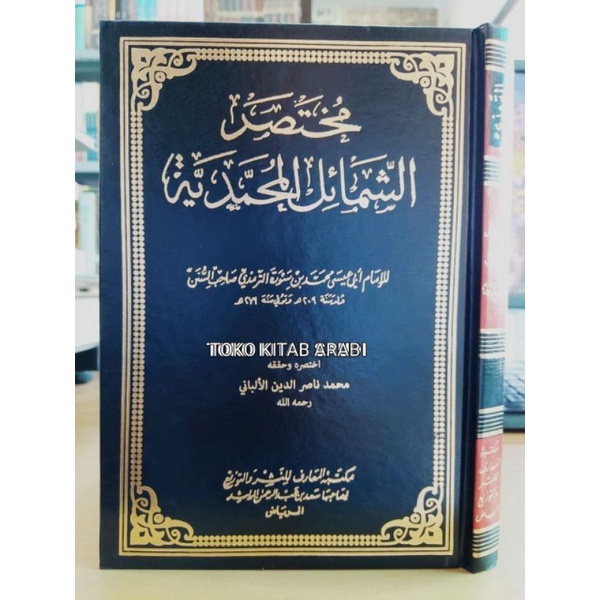 مختصر
الشمائل المحمدية
للإمام أبي عيسى محمد بن سورة الترمذي صاحب السنن
ولد سنة ٢٠٩ھ وتوفي سنة ٢٧٩ھ
TOKO KITAB ARABI
اختصره وحققه
محمد ناصر الدين الألباني
رحمه الله
مكتبة المعارف للنشر والتوزيع
لصاحبها سعد بن عبد الرحمن الراشد
الرياض
مكتبة
المعارف
للنشر
والتوزيع
الرياض